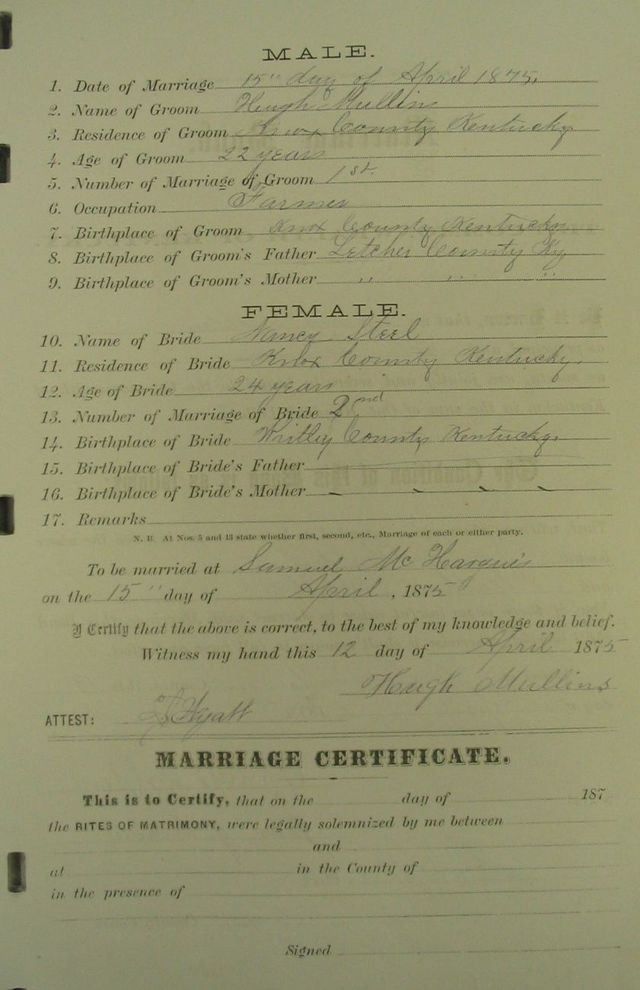 MALE.
1. Date of Marriage 15" day of April 1875.
2. Name of Groom Hugh Mullins
3. Residence of Groom Knox County Kentucky
4. Age of Groom 22 years
5. Number of Marriage of Groom 1st.
6. Occupation Farmer
7. Birthplace of Groom Knox County Kentucky
8. Birthplace of Groom's Father Letcher County Ky
9. Birthplace of Groom's Mother " " "
FEMALE.
10. Name of Bride Nancy Steel
11. Residence of Bride Knox County Kentucky.
12. Age of Bride 24 years
13. Number of Marriage of Bride 2nd
14. Birthplace of Bride Whitley County Kentucky.
15. Birthplace of Bride's Father
16. Birthplace of Bride's Mother
17. Remarks
N. B. At Nos. 5 and 13 state whether first, second, etc., Marriage of each or either party.
To be married at Samuel McHargue's
on the 15" day of April, 1875
I Certify that the above is correct, to the best of my knowledge and belief.
Witness my hand this 12 day of April 1875
Hugh Mullins
ATTEST: Hyatt
MARRIAGE CERTIFICATE.
This is to Certify, that on the day of 187
the RITES OF MATRIMONY, were legally solemnized by me between
and
at in the County of
in the presence of
Signed